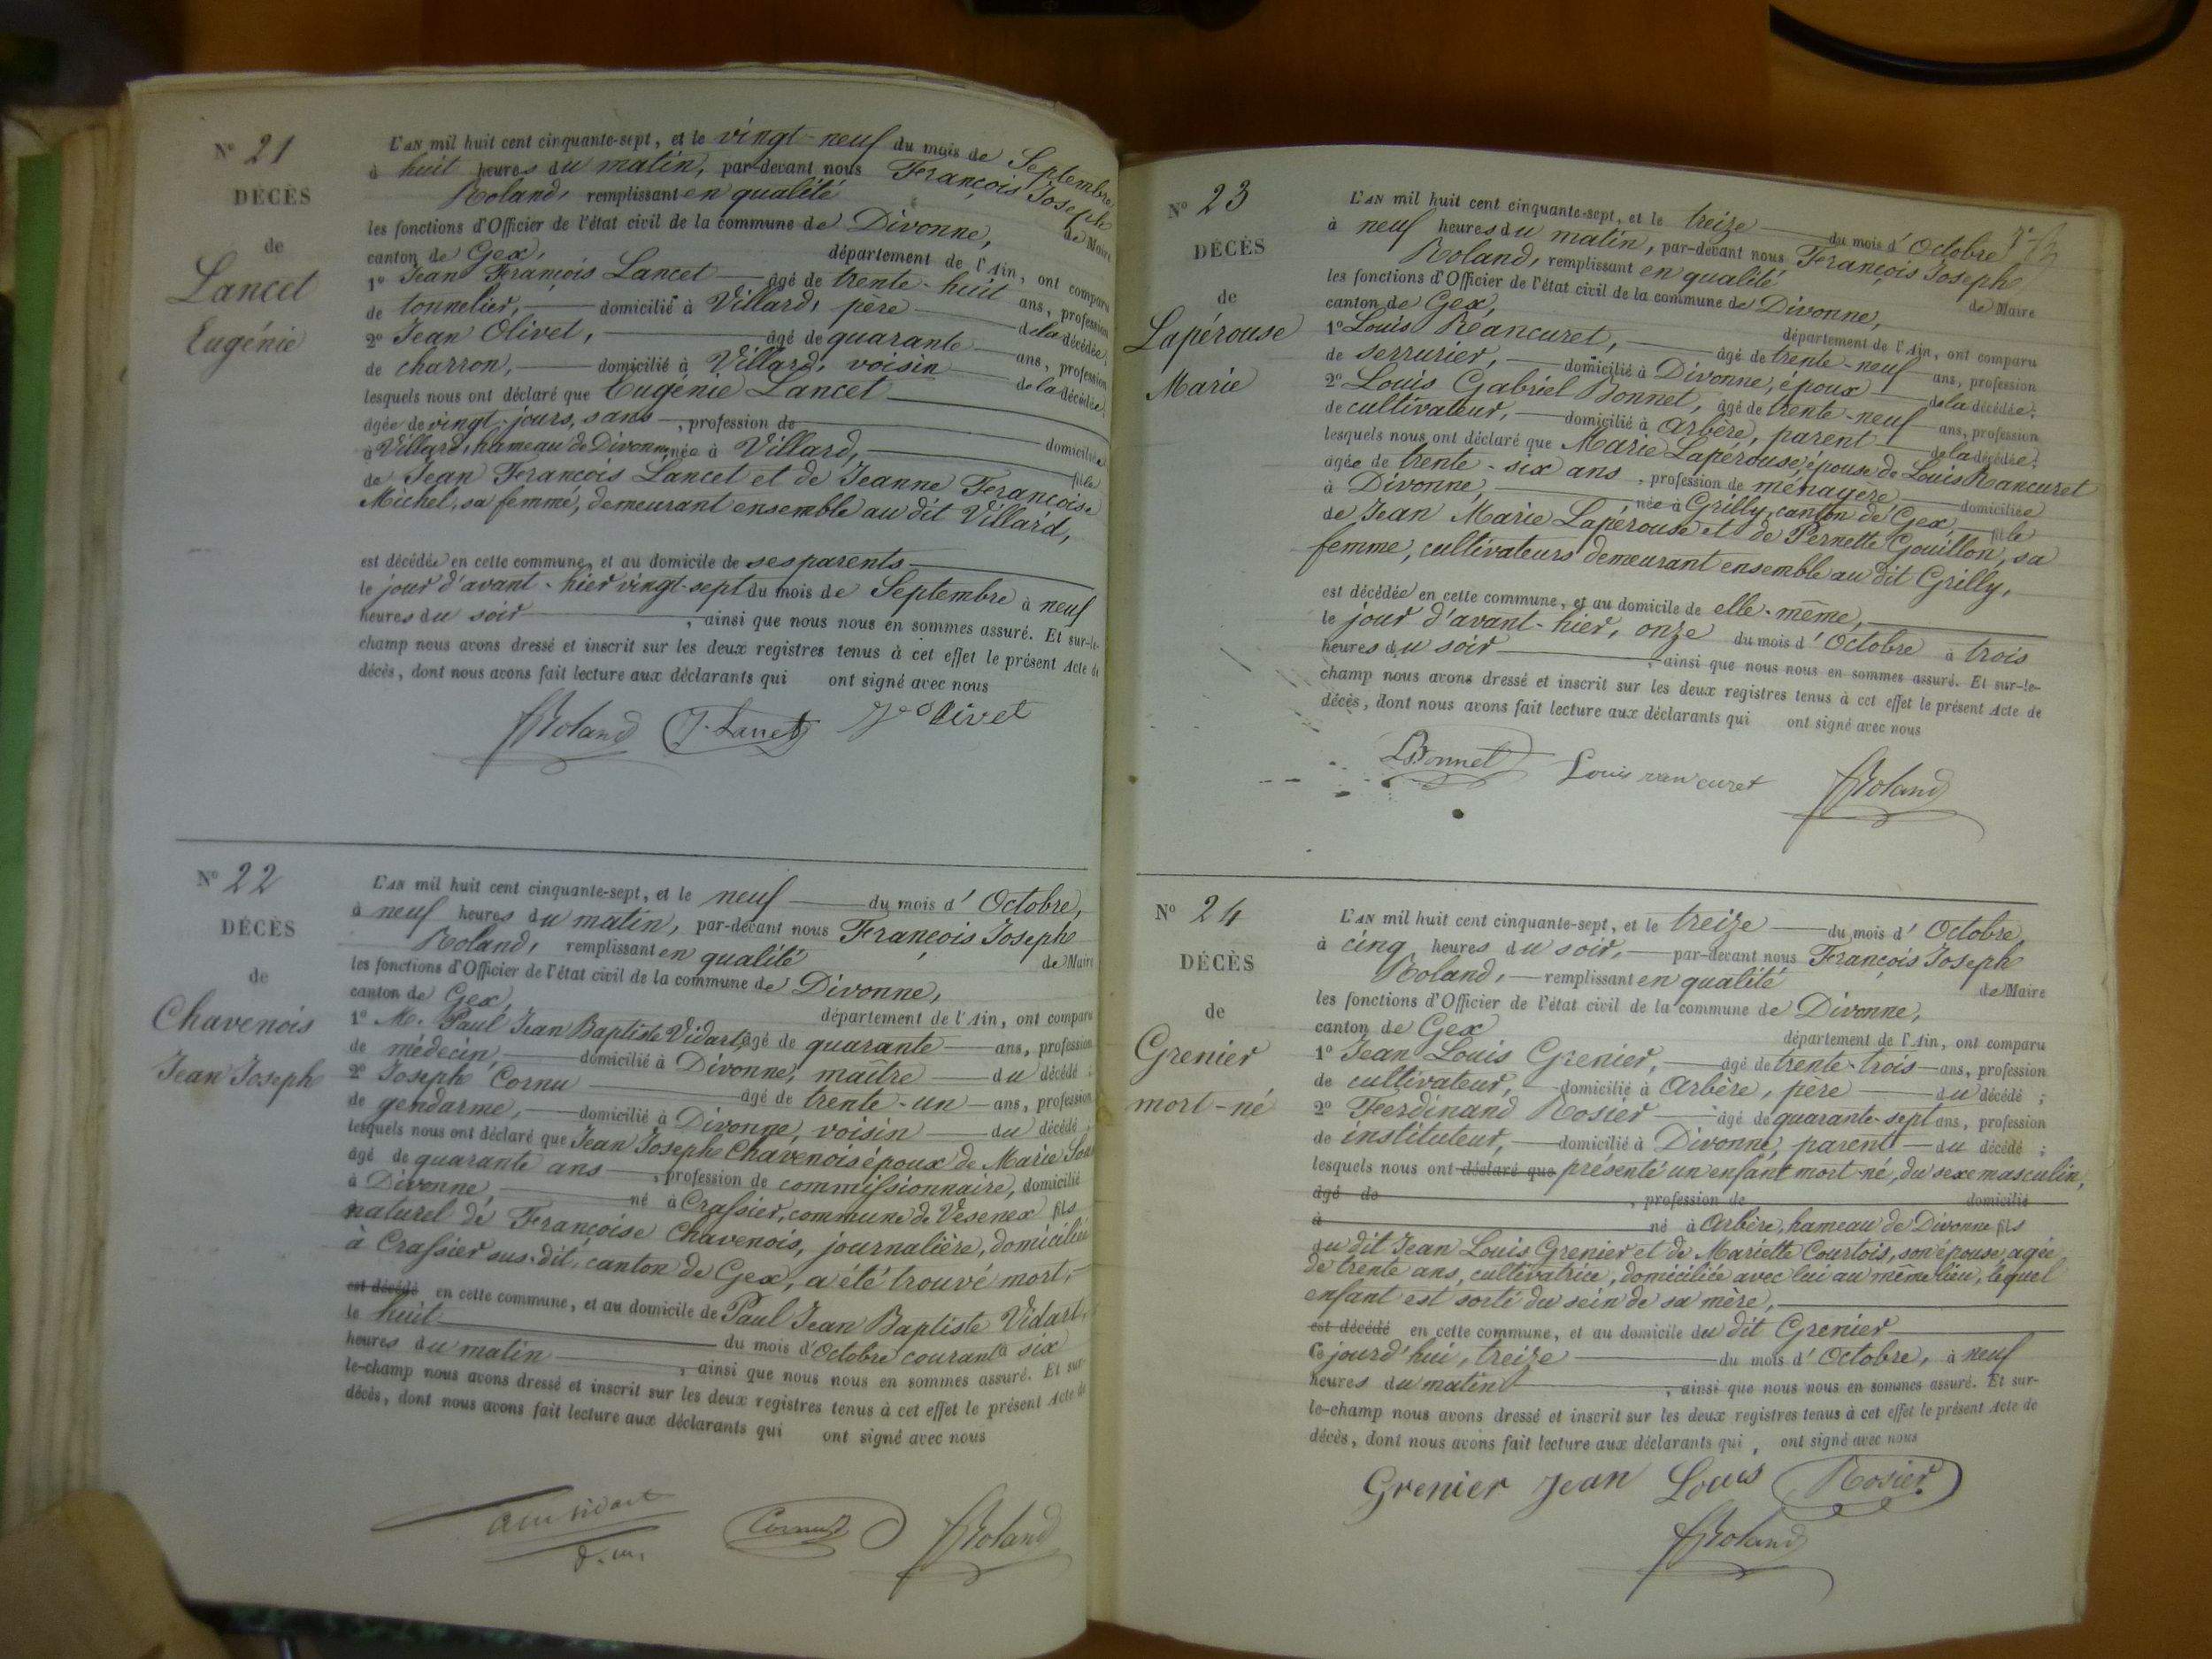 N° 21
DÉCÈS
de
Lancet
Eugénie
L'AN mil huit cent cinquante-sept, et le vingt-neuf du mois de Septembre
à huit heures du matin, par-devant nous François Joseph
Roland, remplissant en qualité de Maire
les fonctions d'Officier de l'état civil de la commune de Divonne,
canton de Gex, département de l'Ain, ont comparu
1° Jean François Lancet âgé de trente-huit ans, profession
de tonnelier, domicilié à Villard, père de la décédée;
2° Jean Olivet, âgé de quarante ans, profession
de charron, domicilié à Villard, voisin de la décédée;
lesquels nous ont déclaré que Eugénie Lancet
âgée de vingt jours, sans, profession de domiciliée
à Villard, hameau de Divonne née à Villard, fille
de Jean François Lancet et de Jeanne Françoise
Michel, sa femme, demeurant ensemble au dit Villard,
est décédée en cette commune, et au domicile de ses parents
le jour d'avant-hier vingt-sept du mois de Septembre à neuf
heures du soir, ainsi que nous nous en sommes assuré. Et sur-le-
champ nous avons dressé et inscrit sur les deux registres tenus à cet effet le présent Acte de
décès, dont nous avons fait lecture aux déclarants qui ont signé avec nous
Roland J. Lancet J Olivet
N° 22
DÉCÈS
de
Chavenois
Jean Joseph
L'AN mil huit cent cinquante-sept, et le neuf du mois d'Octobre,
à neuf heures du matin, par-devant nous François Joseph
Roland, remplissant en qualité de Maire
les fonctions d'Officier de l'état civil de la commune de Divonne,
canton de Gex, département de l'Ain, ont comparu
1° M. Paul Jean Baptiste Vidart, âgé de quarante ans, profession
de médecin, domicilié à Divonne, maître du décédé;
2° Joseph Cornu âgé de trente-un ans, profession
de gendarme, domicilié à Divonne, voisin du décédé;
lesquels nous ont déclaré que Jean Joseph Chavenois époux de Marie
âgé de quarante ans, profession de commissionnaire, domicilié
à Divonne, né à Crassier, commune de Vesenex fils
naturel de Françoise Chavenois, journalière, domiciliée
à Crassier sus-dit, canton de Gex, a été trouvé mort,
est décédé en cette commune, et au domicile de Paul Jean Baptiste Vidart,
le huit du mois d'Octobre courant à six
heures du matin, ainsi que nous nous en sommes assuré. Et sur-
le-champ nous avons dressé et inscrit sur les deux registres tenus à cet effet le présent Acte de
décès, dont nous avons fait lecture aux déclarants qui ont signé avec nous
Vidart d. m. Cornu Roland
N° 23
DÉCÈS
de
Lapérouse
Marie
L'AN mil huit cent cinquante-sept, et le treize du mois d'Octobre
à neuf heures du matin, par-devant nous François Joseph
Roland, remplissant en qualité de Maire
les fonctions d'Officier de l'état civil de la commune de Divonne,
canton de Gex, département de l'Ain, ont comparu
1° Louis Rancuret, âgé de trente-neuf ans, profession
de serrurier, domicilié à Divonne, époux de la décédée;
2° Louis Gabriel Bonnet, âgé de trente-neuf ans, profession
de cultivateur, domicilié à Arbère, parent de la décédée;
lesquels nous ont déclaré que Marie Lapérouse, épouse de Louis Rancuret
âgée de trente-six ans, profession de ménagère domiciliée
à Divonne, née à Grilly, canton de Gex, fille
de Jean Marie Lapérouse et de Pernette Gouillon, sa
femme, cultivateurs demeurant ensemble au dit Grilly,
est décédée en cette commune, et au domicile de elle-même,
le jour d'avant-hier, onze du mois d'Octobre à trois
heures du soir, ainsi que nous nous en sommes assuré. Et sur-le-
champ nous avons dressé et inscrit sur les deux registres tenus à cet effet le présent Acte de
décès, dont nous avons fait lecture aux déclarants qui ont signé avec nous
LBonnet Louis rancuret Roland
N° 24
DÉCÈS
de
Grenier
mort-né
L'AN mil huit cent cinquante-sept, et le treize du mois d'Octobre
à cinq heures du soir, par-devant nous François Joseph
Roland, remplissant en qualité de Maire
les fonctions d'Officier de l'état civil de la commune de Divonne,
canton de Gex département de l'Ain, ont comparu
1° Jean Louis Grenier, âgé de trente-trois ans, profession
de cultivateur, domicilié à Arbère, père du décédé;
2° Ferdinand Rosier âgé de quarante-sept ans, profession
de instituteur, domicilié à Divonne, parent du décédé;
lesquels nous ont déclaré que présenté un enfant mort-né, du sexe masculin,
âgé de, profession de domicilié
à né à Arbère, hameau de Divonne fils
du dit Jean Louis Grenier et de Mariette Courtois, son épouse, agée
de trente ans, cultivatrice, domiciliée avec lui au même lieu, lequel
enfant est sorti du sein de sa mère,
est décédé en cette commune, et au domicile du dit Grenier
Ce jourd'hui, treize du mois d'Octobre, à neuf
heures du matin, ainsi que nous nous en sommes assuré. Et sur-
le-champ nous avons dressé et inscrit sur les deux registres tenus à cet effet le présent Acte de
décès, dont nous avons fait lecture aux déclarants qui, ont signé avec nous
Grenier Jean Louis Rosier
Roland